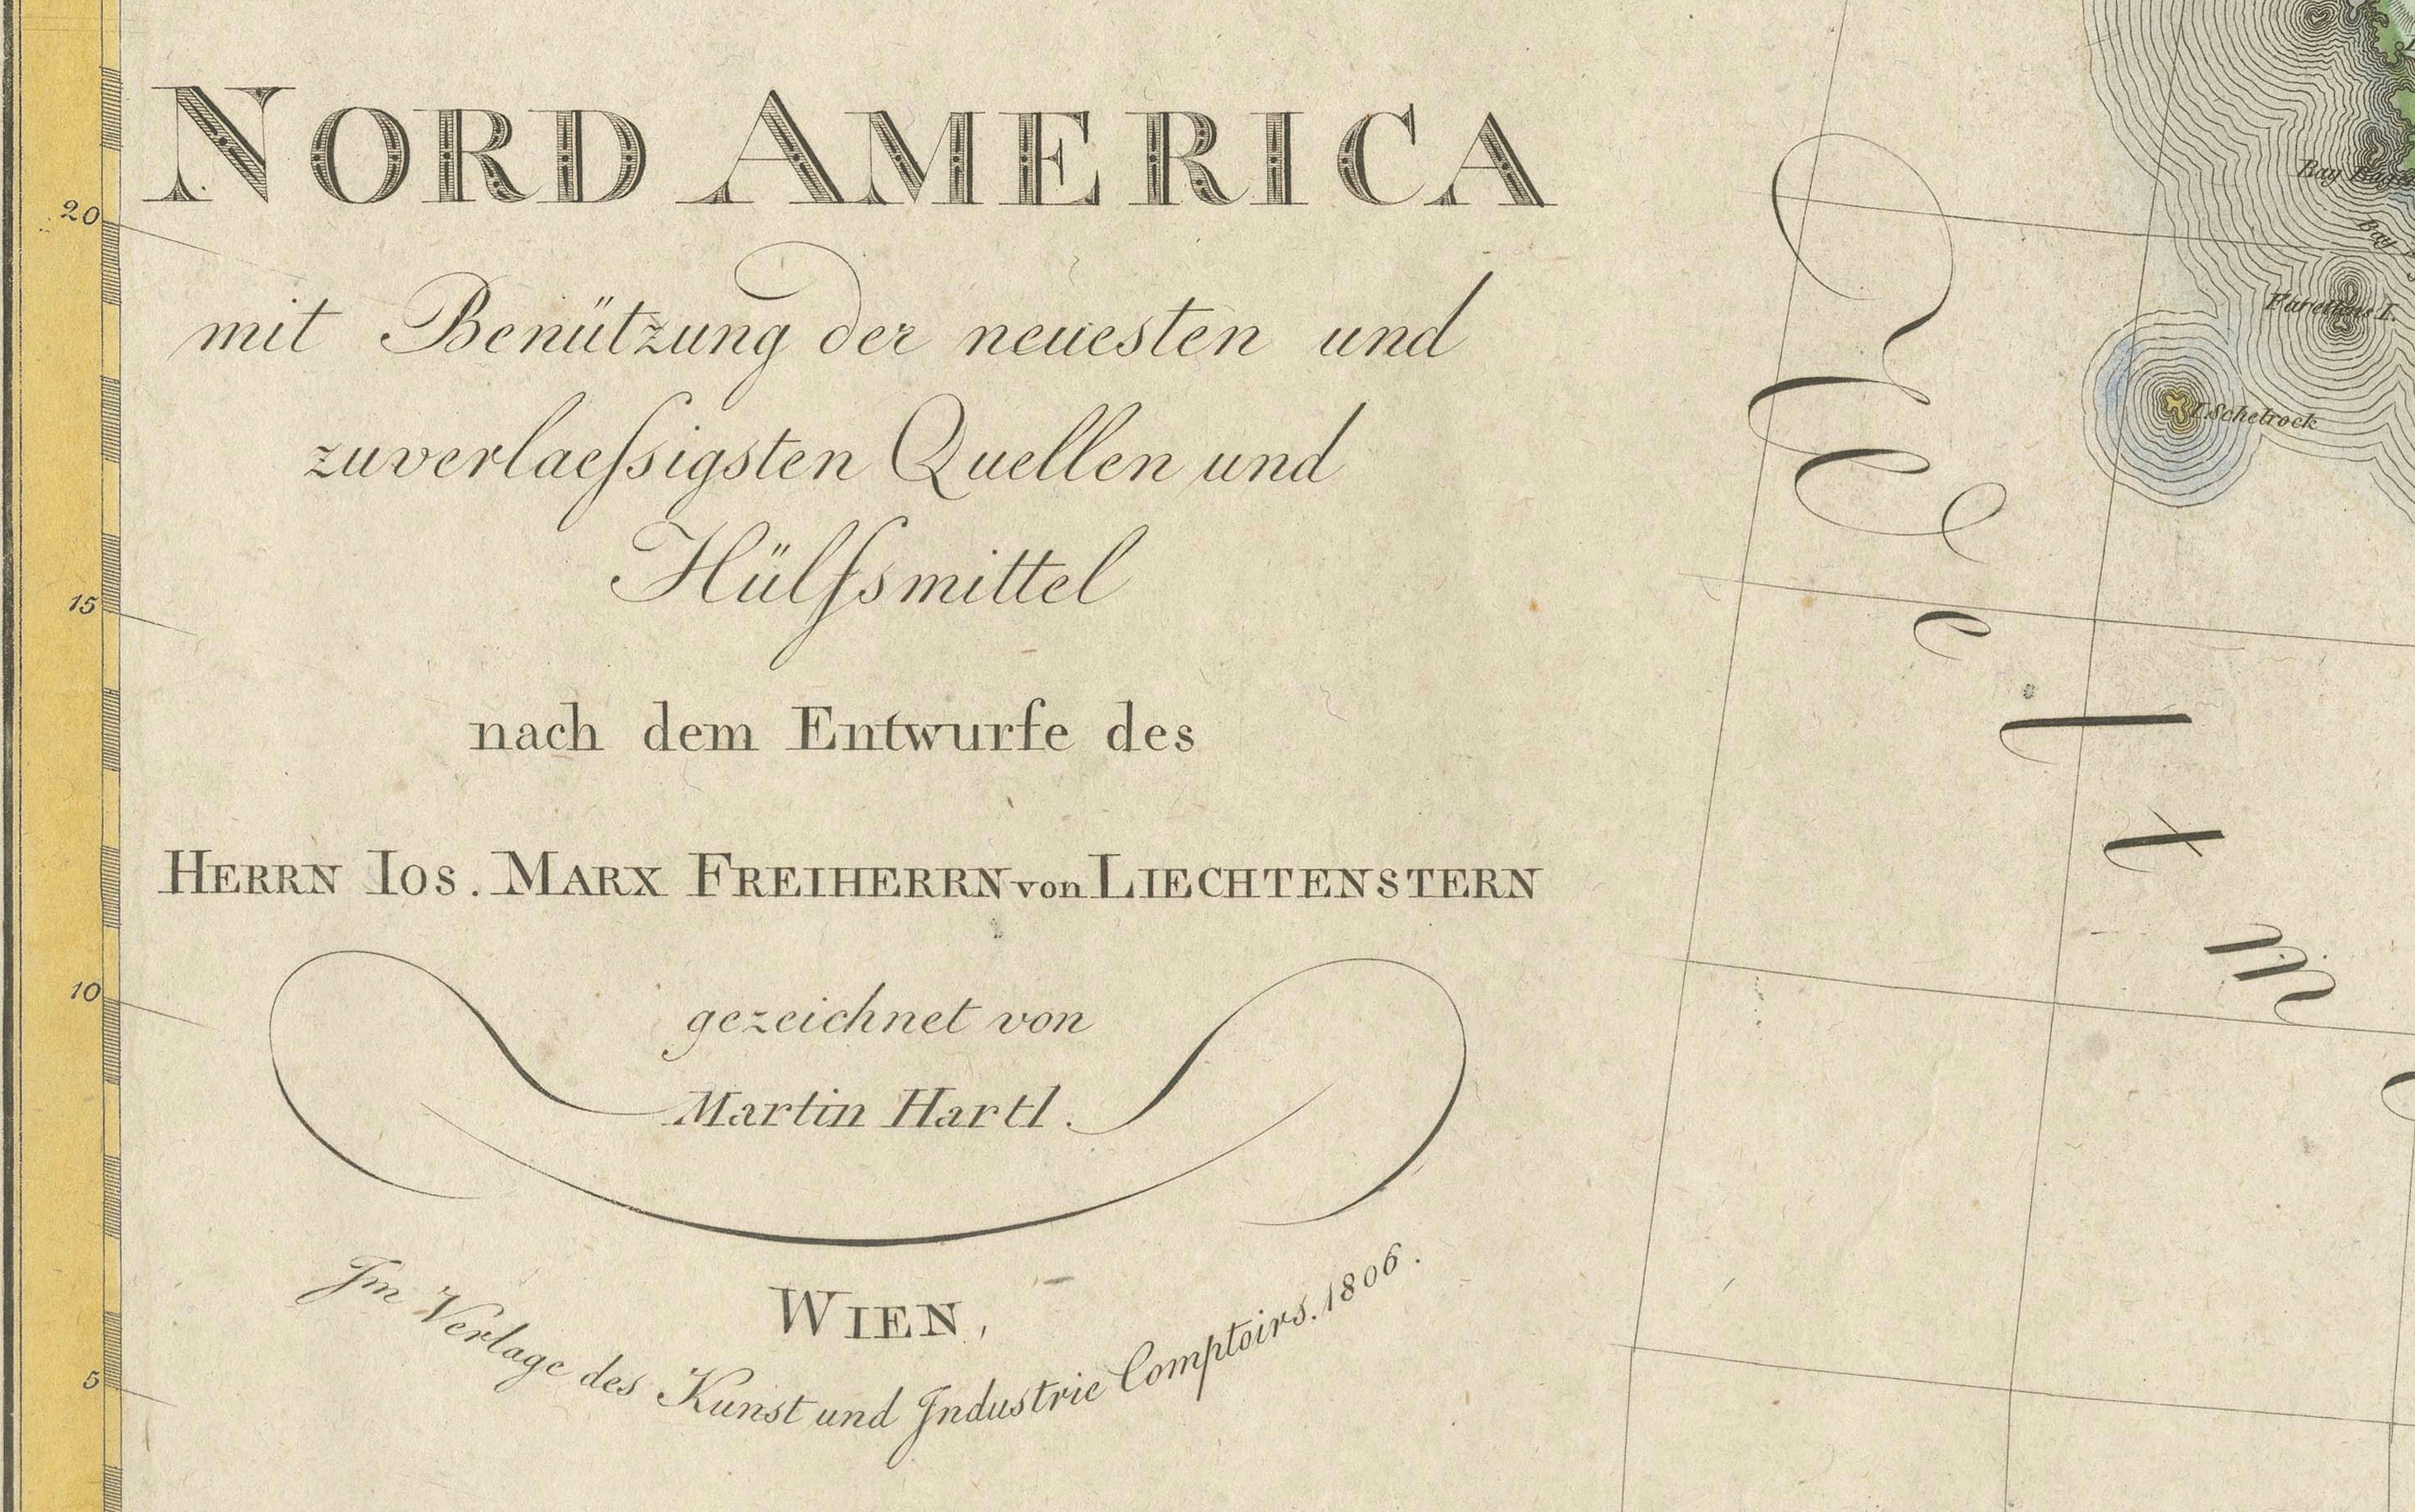 NORD AMERICA
mit Benützung der neuesten und
zuverlaeſsigsten Quellen und
Hülfsmittel
nach dem Entwurfe des
HERRN IOS. MARX FREIHERRN von LIECHTENSTERN
gezeichnet von
Martin Hartl.
WIEN,
Im Verlage des Kunst und Industrie Comptoirs. 1806.
20
15
10
5
Bay
Bay
I. Schelrock
Weltm